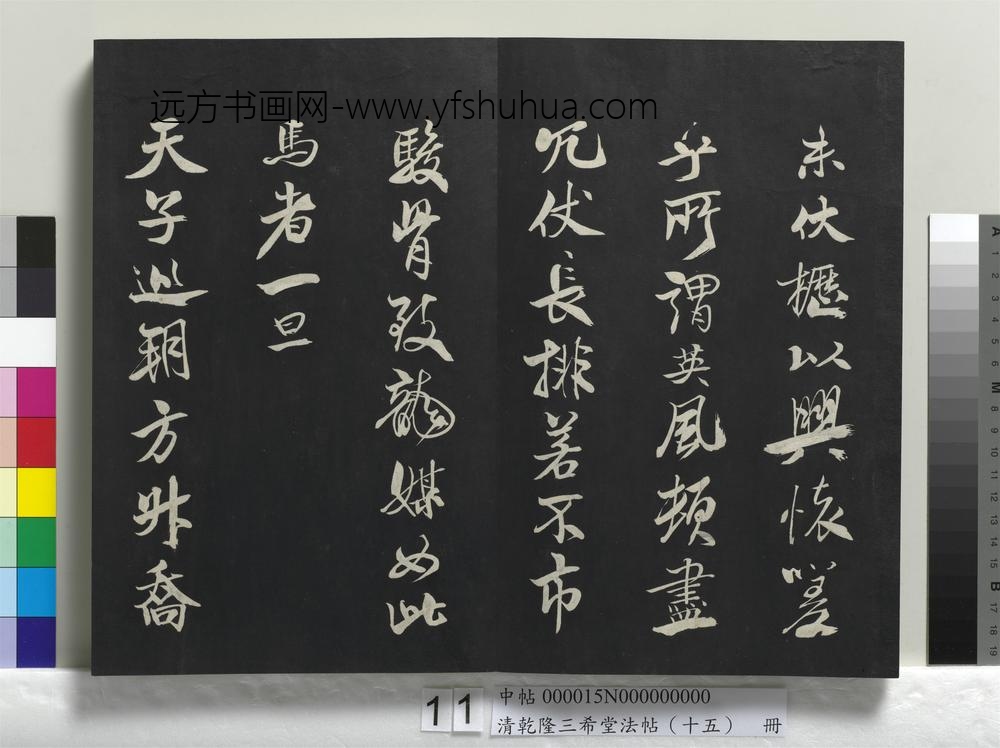 远方书画网-www.yfshuhua.com
未伏櫪以興懷嗟
乎所謂英風頓盡
冗仗長排若不市
駿骨致龍媒如此
馬者一旦
天子巡朔方升喬
11
中帖 000015N000000000
清乾隆三希堂法帖（十五） 冊
A 1 2 3 4 5 6 M 8 9 10 11 12 13 14 15 B 17 18 19